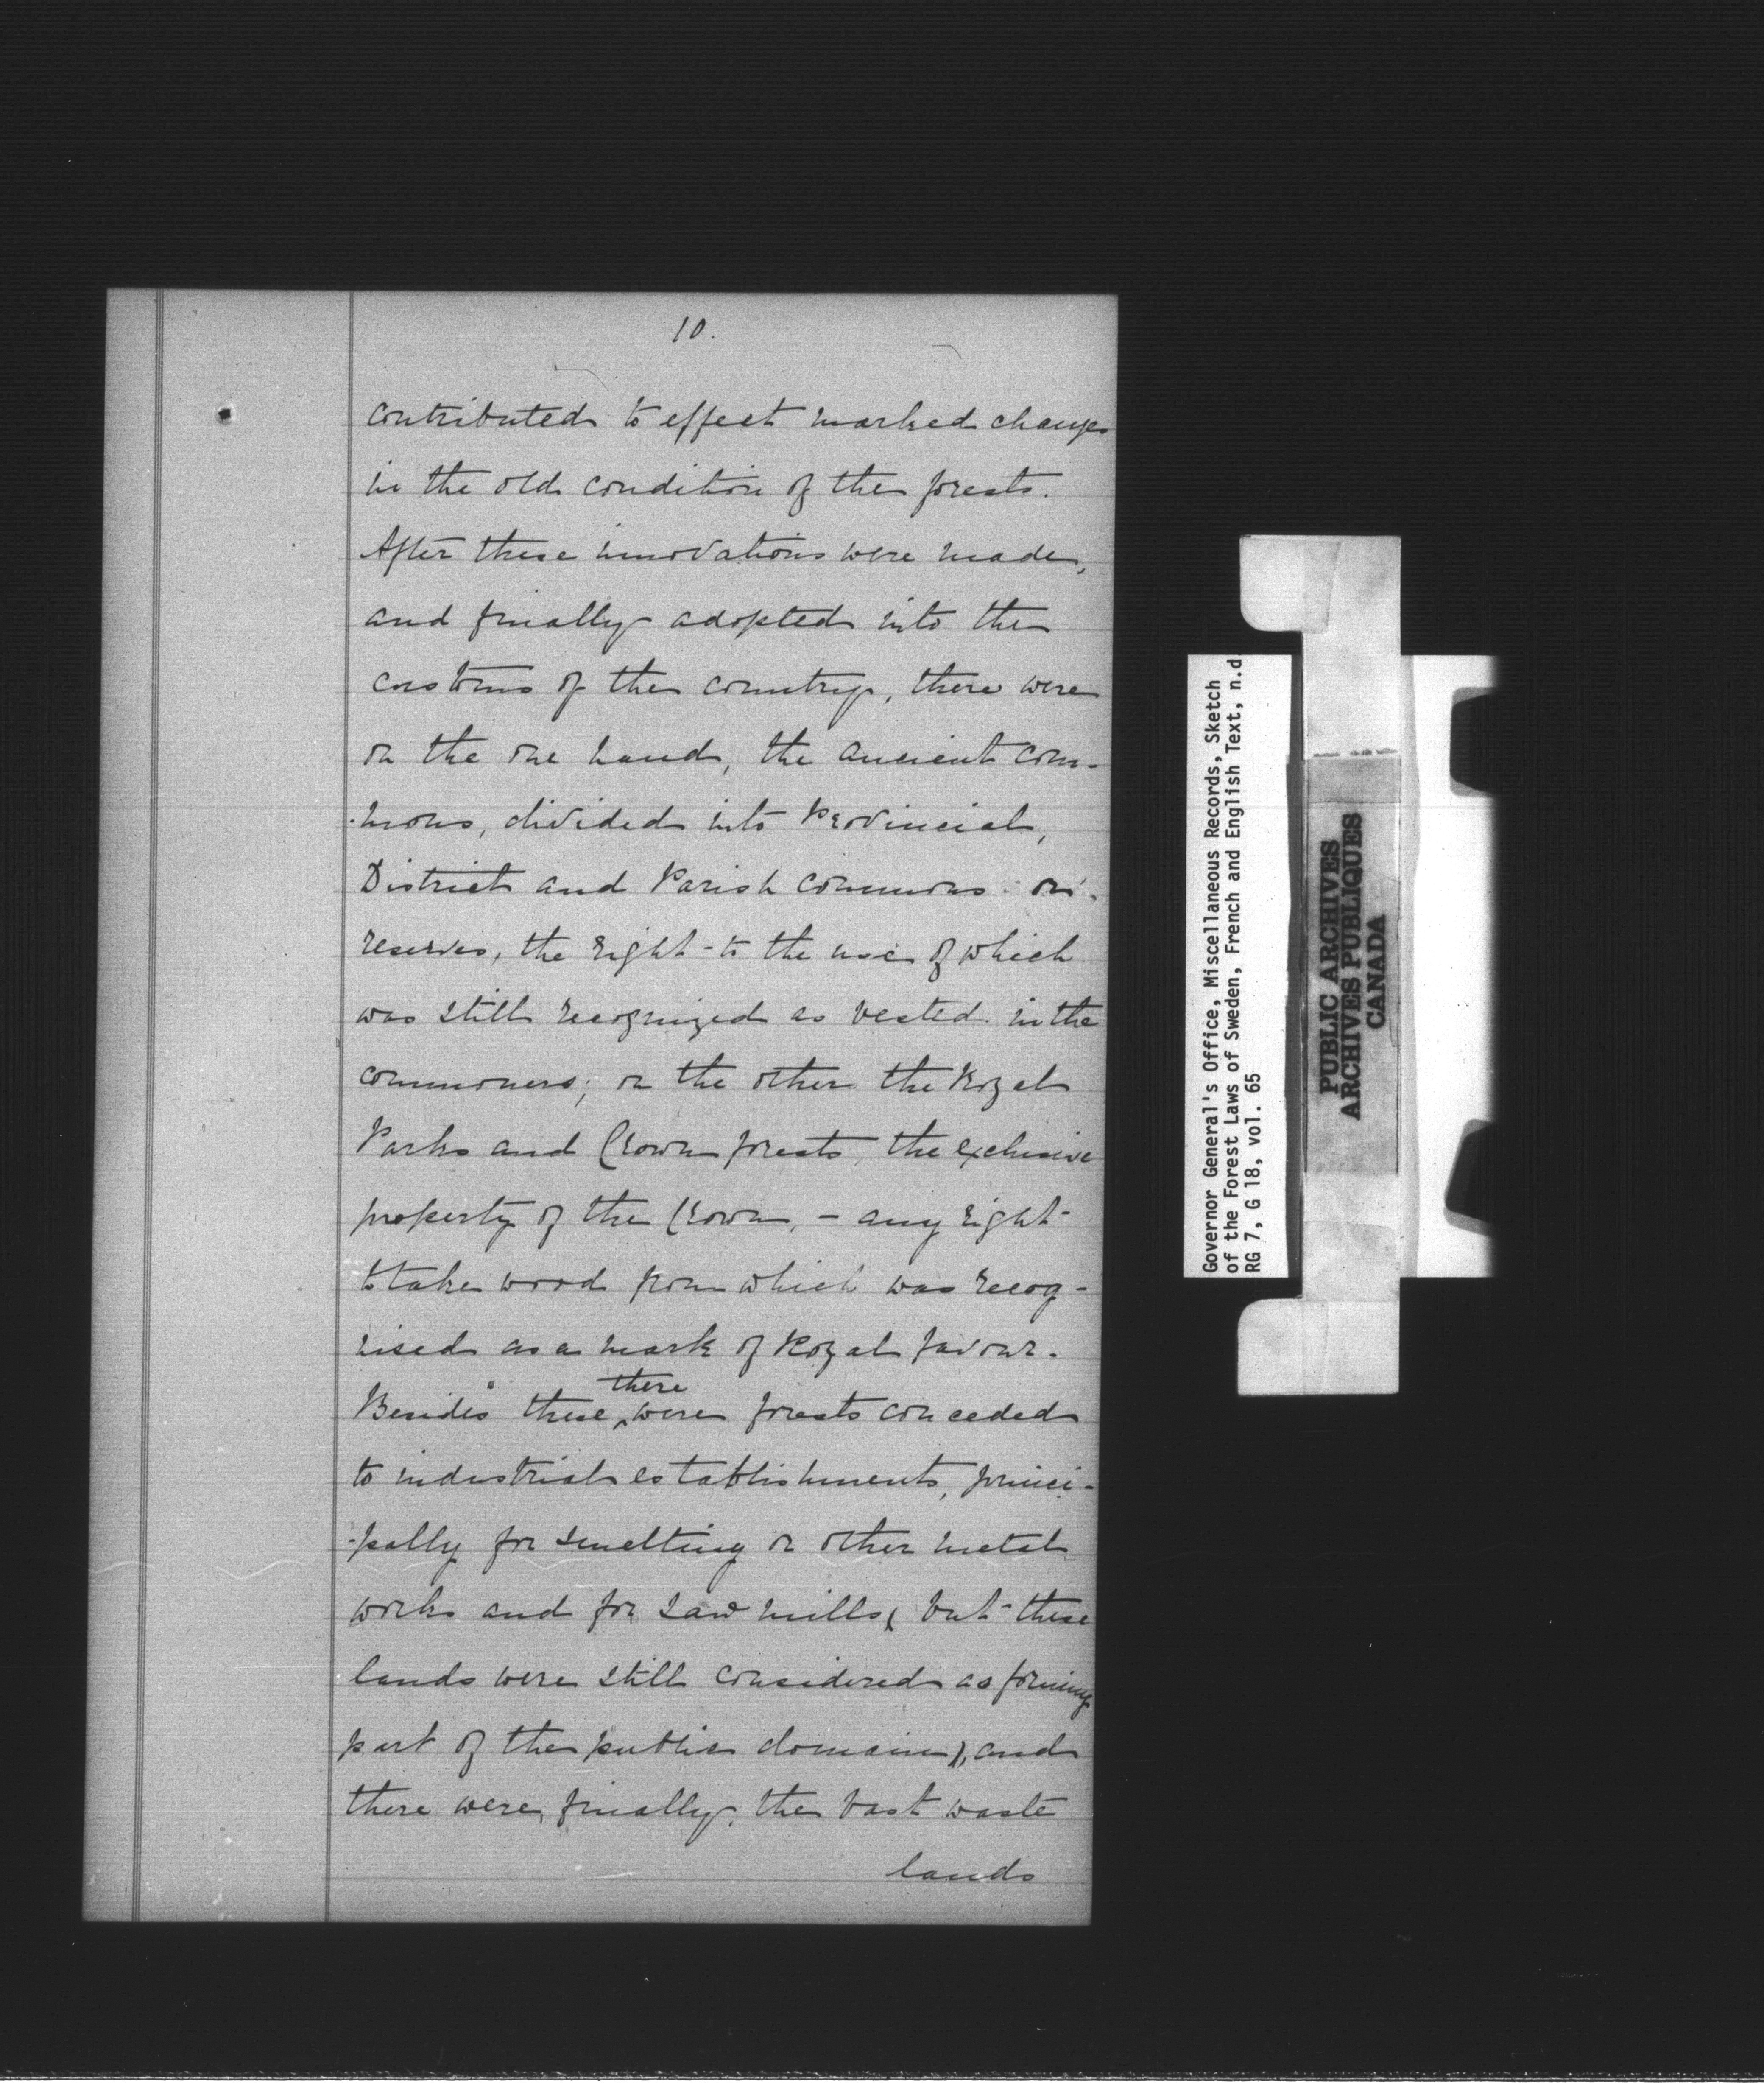 10.
contributed to effect marked changes
in the old condition of the forests.
After these innovations were made,
and finally adopted into the
customs of the country, there were
on the one hand, the ancient com-
-mons, divided into Provincial,
District and Parish commons or
reserves, the right to the use of which
was still recognized as vested in the
commoners; on the other the Royal
Parks and Crown forests, the exclusive
property of the Crown, - any right
to take wood from which was recog-
nised as a mark of Royal favour.
there
Besides these ‸ were forests conceded
to industrial establishments, princi-
-pally for smelting or other metal
works and for saw mills, (but these
lands were still considered as forming
part of the public domain), and
there were, finally, the vast waste
lands
Governor General's Office, Miscellaneous Records, Sketch
of the Forest Laws of Sweden, French and English Text, n.d
RG 7, G 18, vol. 65
PUBLIC ARCHIVES
ARCHIVES PUBLIQUES
CANADA